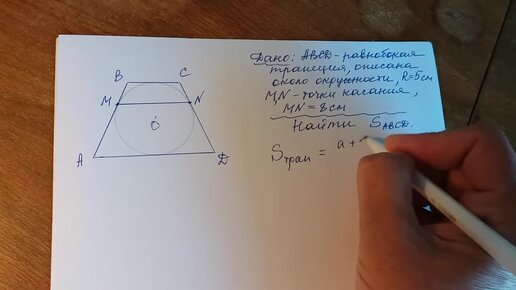 Дано: ABCD - равнобокая
трапеция, описана
около окружности, R=5см
M,N - точки касания,
MN = 8см
Найти S ABCD.
B C
M N
O
A D
Sтрап = a +